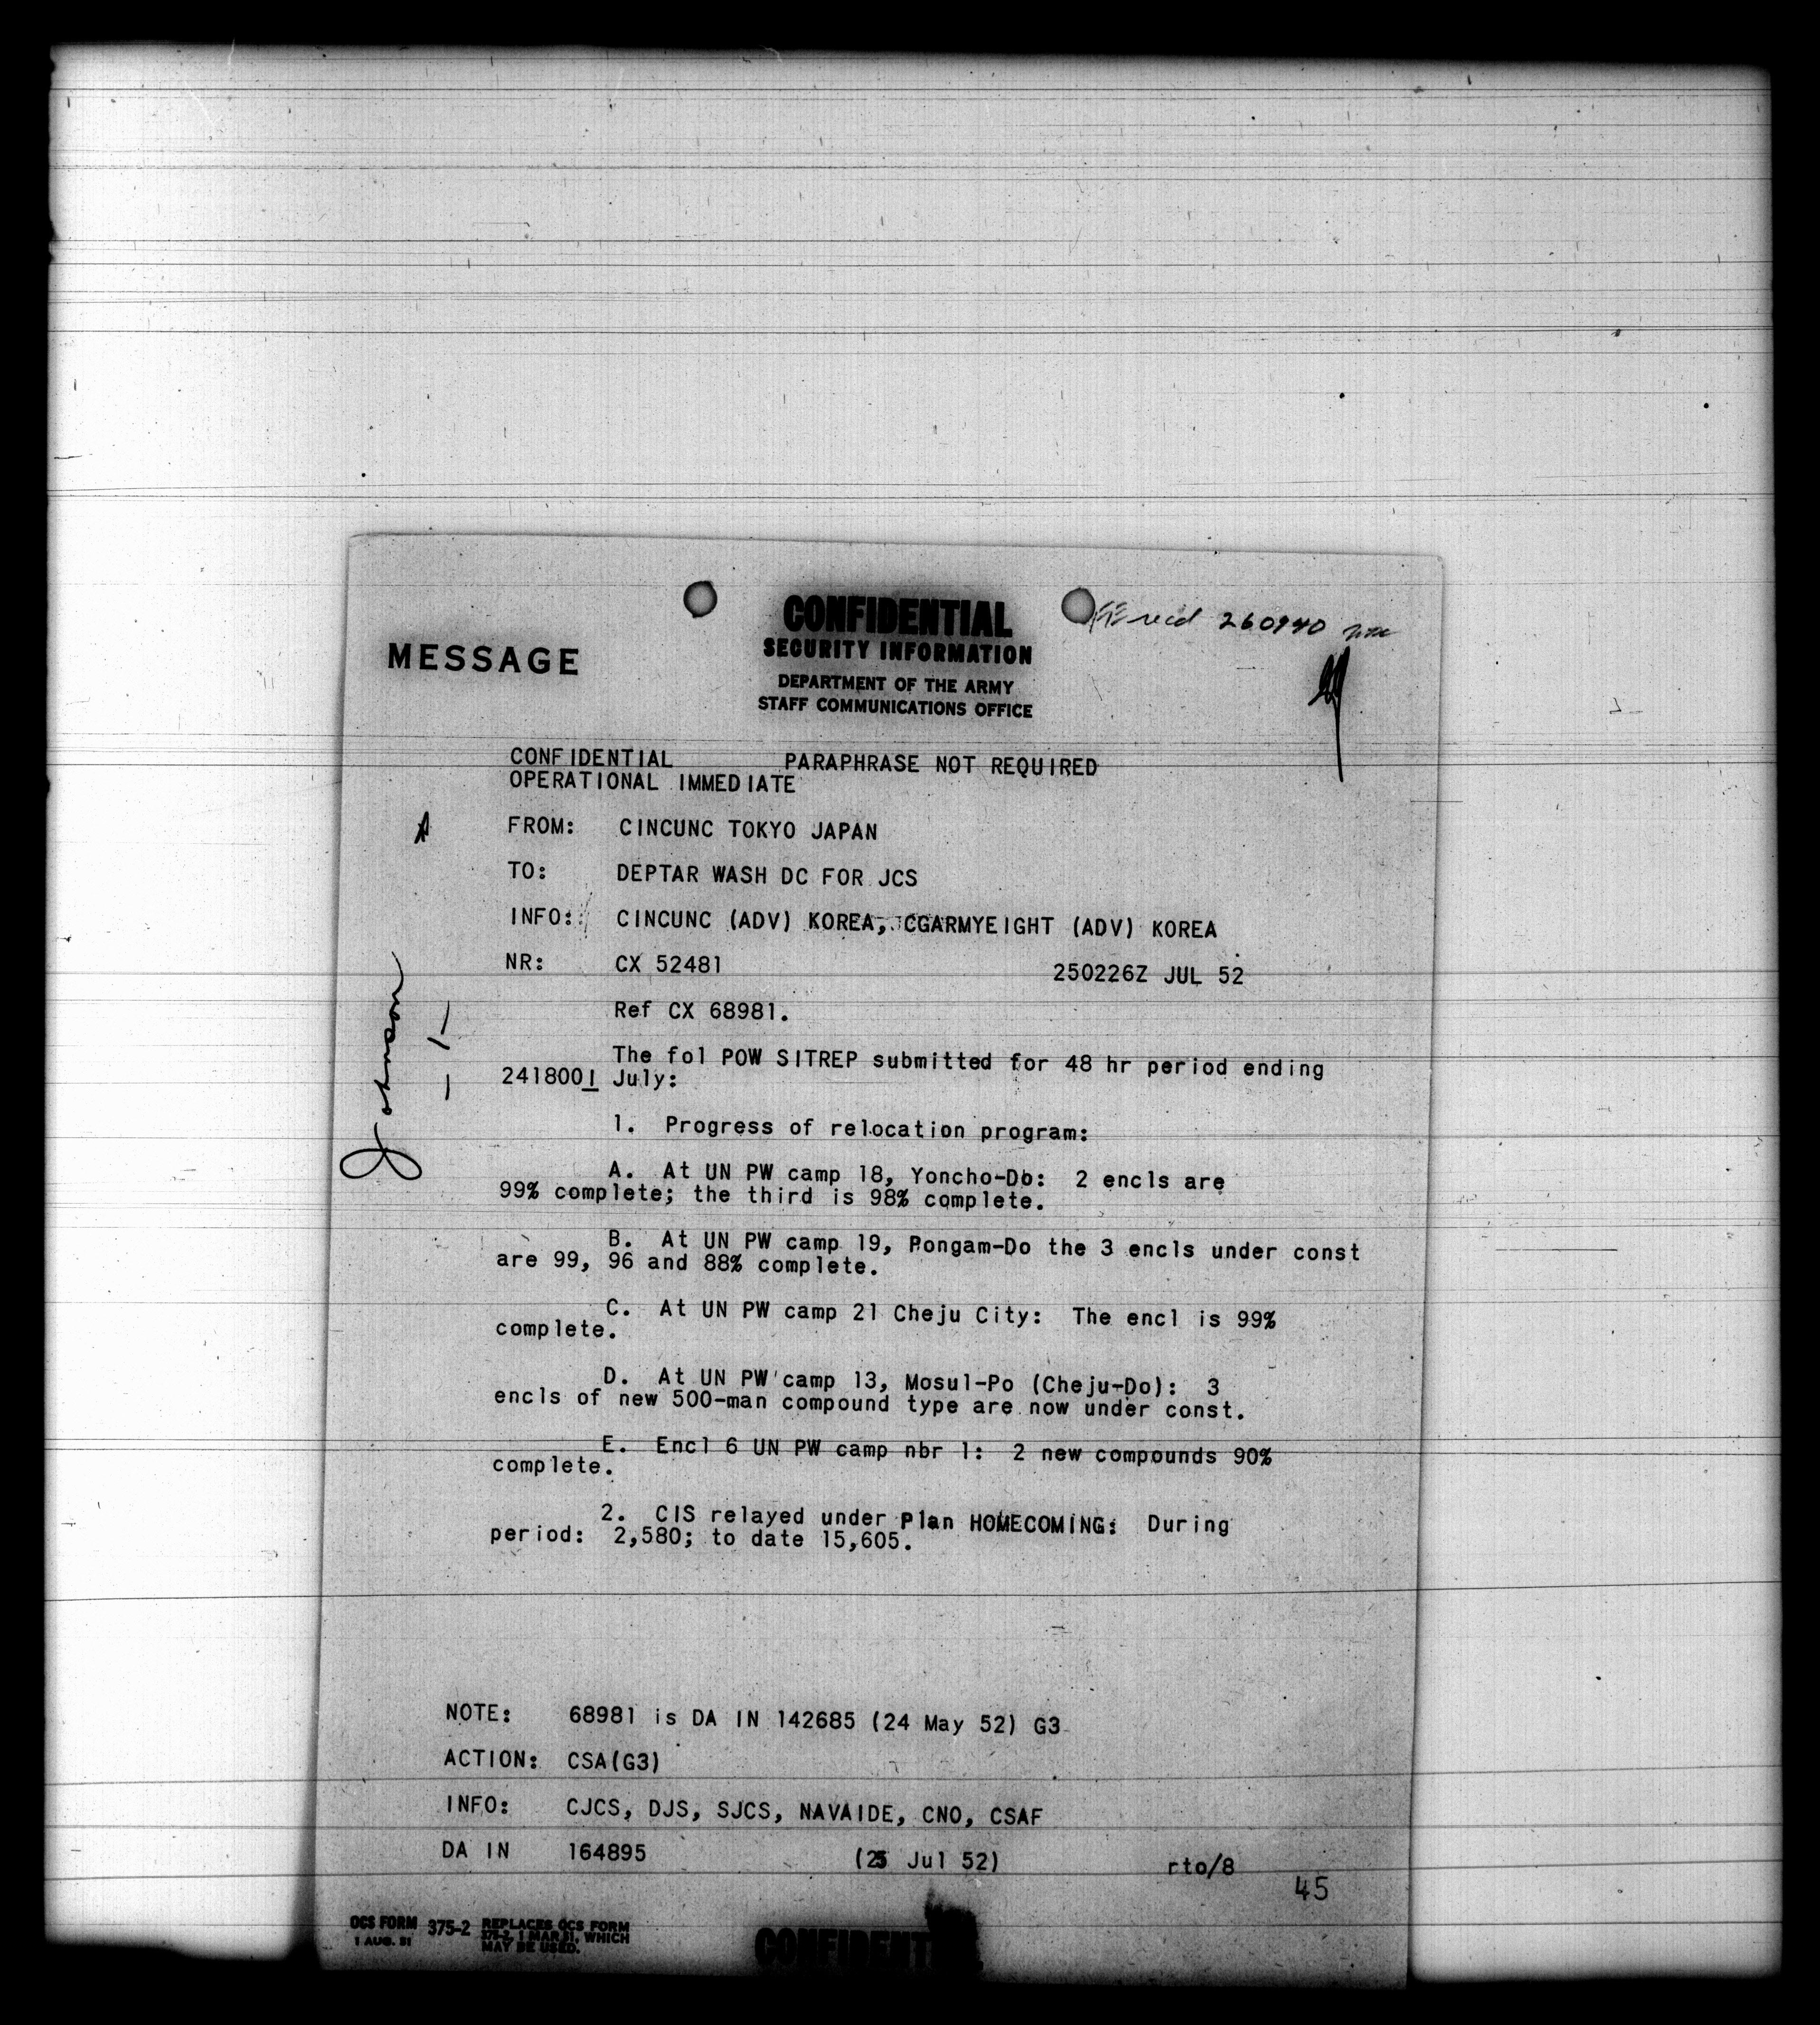 CONFIDENTIAL
SECURITY INFORMATION
recd 260940
MESSAGE
DEPARTMENT OF THE ARMY
STAFF COMMUNICATIONS OFFICE
CONFIDENTIAL PARAPHRASE NOT REQUIRED
OPERATIONAL IMMEDIATE
FROM: CINCUNC TOKYO JAPAN
TO: DEPTAR WASH DC FOR JCS
INFO: CINCUNC (ADV) KOREA, CGARMYEIGHT (ADV) KOREA
NR: CX 52481 250226Z JUL 52
Ref CX 68981.
The fol POW SITREP submitted for 48 hr period ending
241800I July:
1. Progress of relocation program:
A. At UN PW camp 18, Yoncho-Do: 2 encls are
99% complete; the third is 98% complete.
B. At UN PW camp 19, Pongam-Do the 3 encls under const
are 99, 96 and 88% complete.
C. At UN PW camp 21 Cheju City: The encl is 99%
complete.
D. At UN PW camp 13, Mosul-Po (Cheju-Do): 3
encls of new 500-man compound type are now under const.
E. Encl 6 UN PW camp nbr 1: 2 new compounds 90%
complete.
2. CIS relayed under Plan HOMECOMING: During
period: 2,580; to date 15,605.
Johnson
NOTE: 68981 is DA IN 142685 (24 May 52) G3
ACTION: CSA(G3)
INFO: CJCS, DJS, SJCS, NAVAIDE, CNO, CSAF
DA IN 164895 (25 Jul 52) rto/8
45
OCS FORM 375-2 REPLACES OCS FORM
1 AUG. 51 375-2, 1 MAR 51, WHICH
MAY BE USED.
CONFIDENT